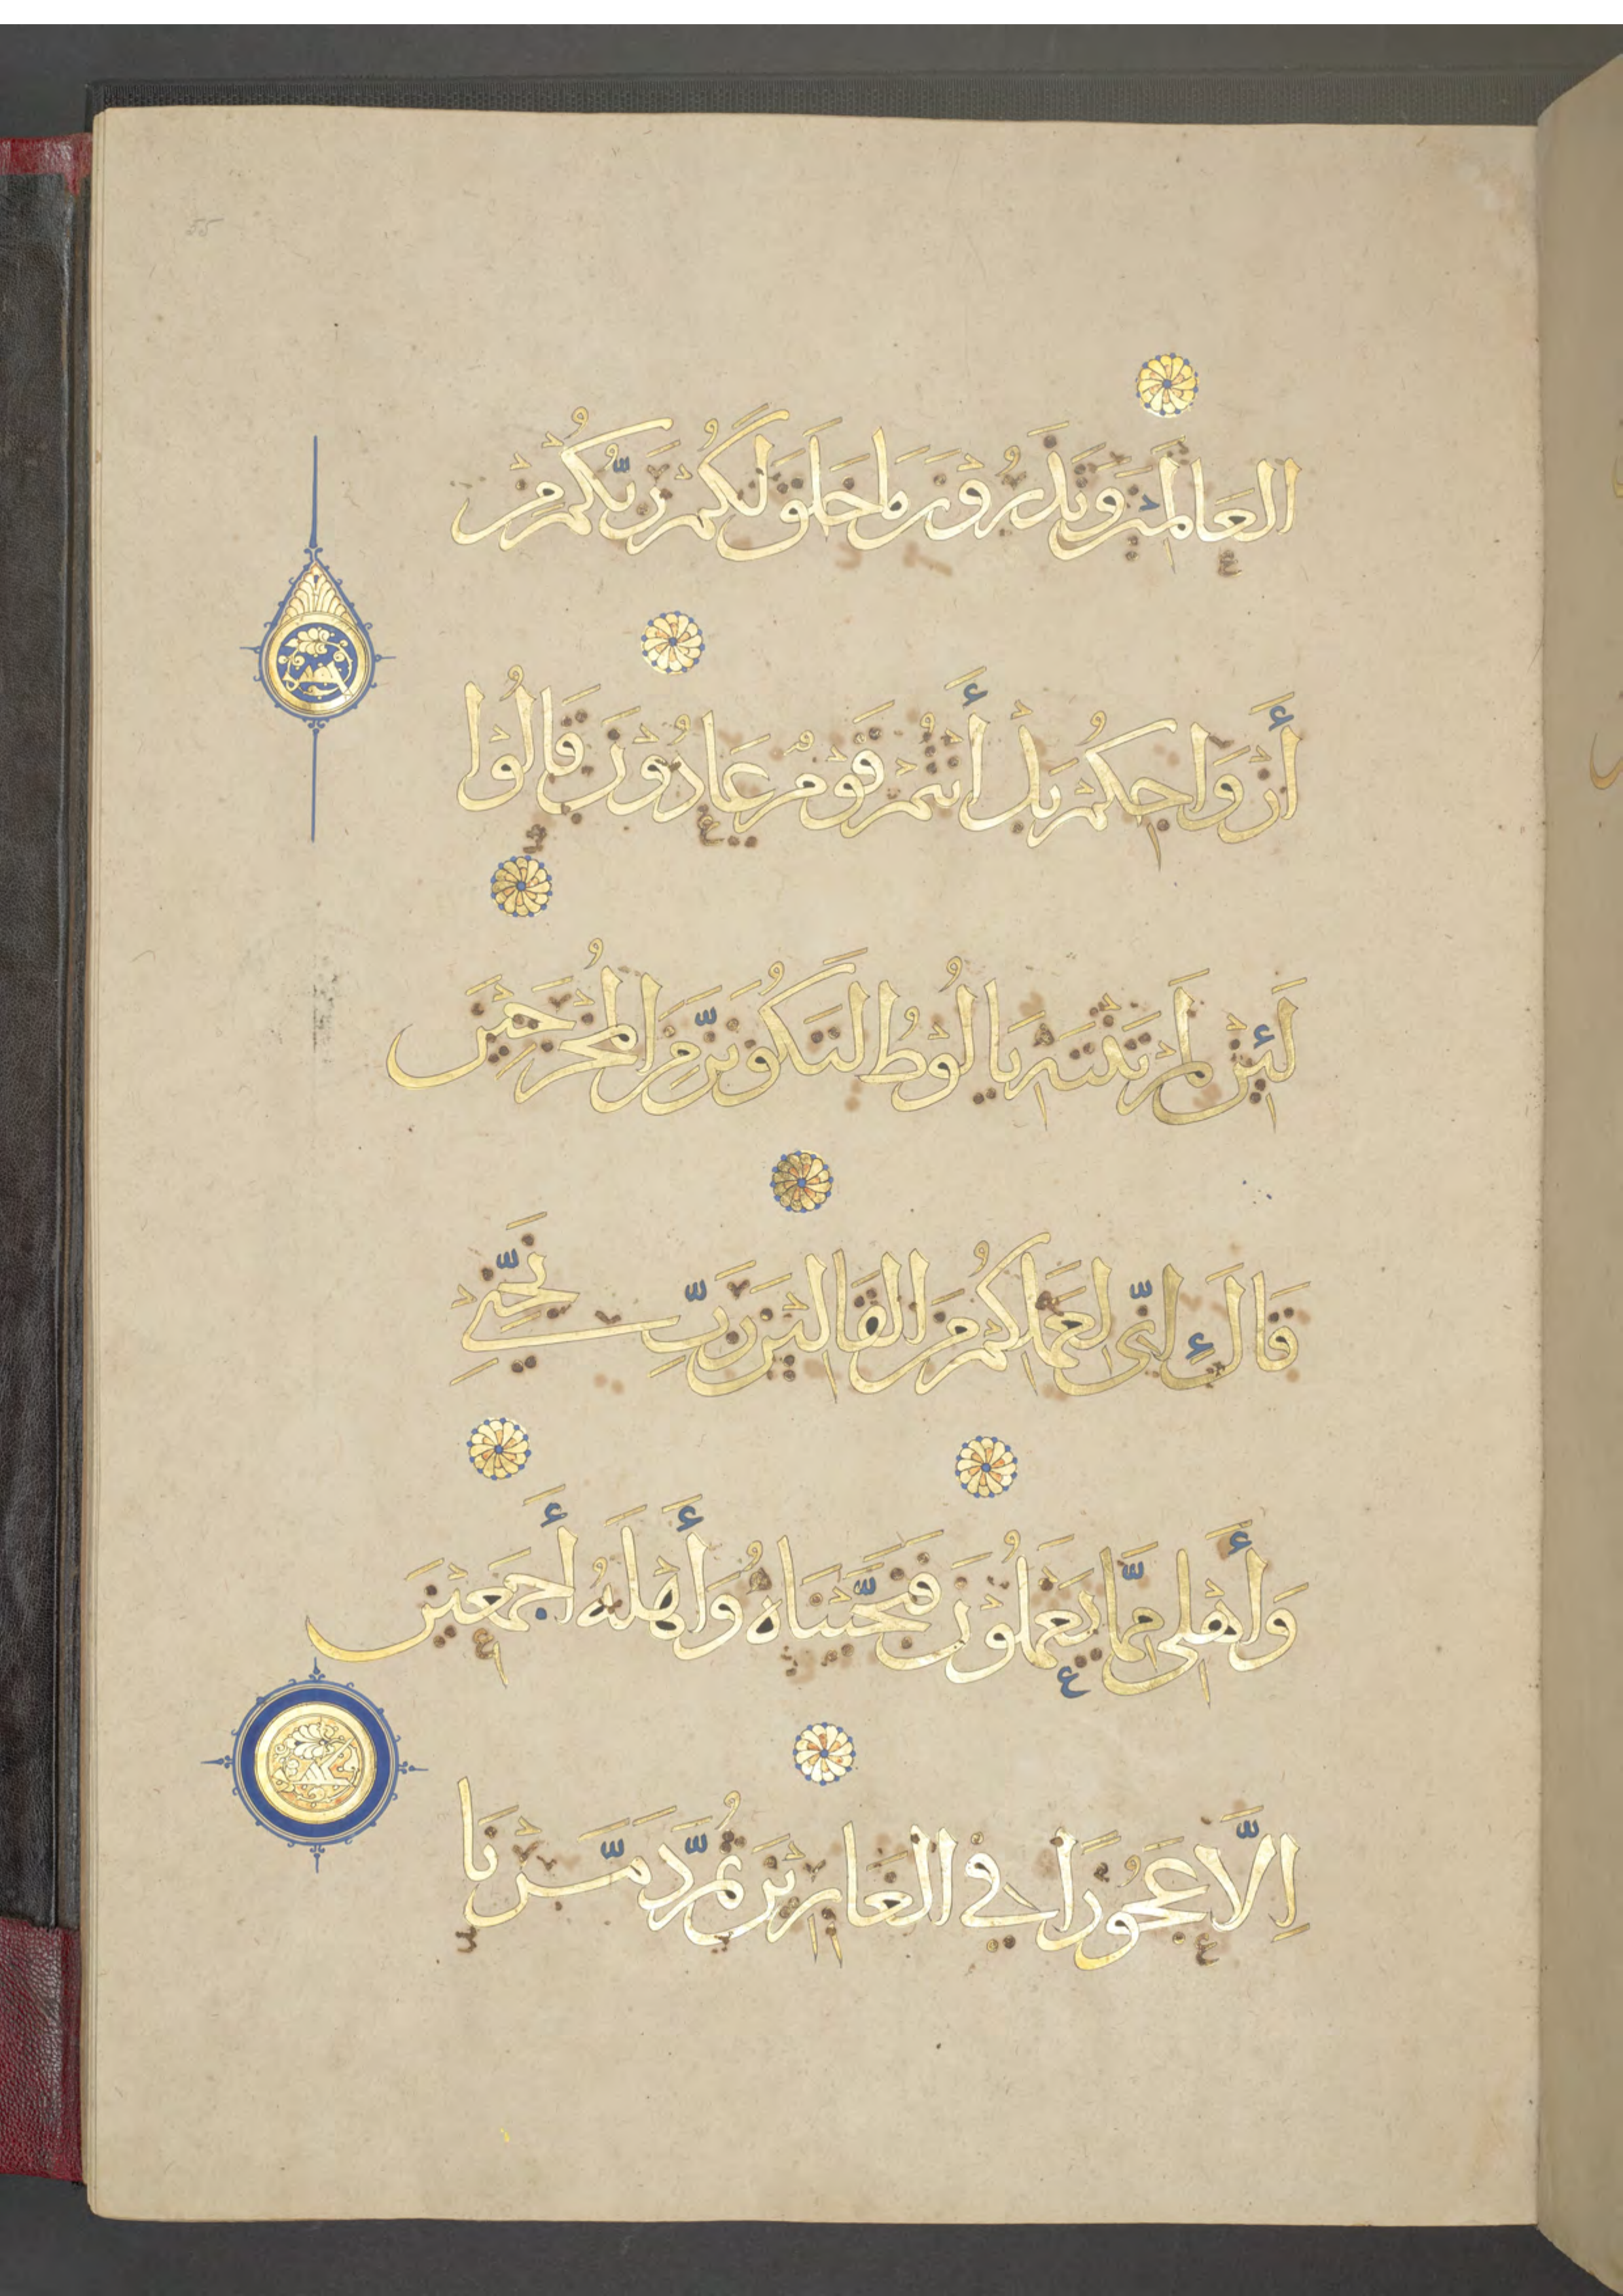 55
العَالَمِيْنَ وَتَذَرُوْنَ مَا خَلَقَ لَكُمْ رَبُّكُمْ مِنْ
أَزْوَاجِكُمْ بَلْ أَنْتُمْ قَوْمٌ عَادُوْنَ قَالُوْا
لَئِنْ لَمْ تَنْتَهِ يَا لُوْطُ لَتَكُوْنَنَّ مِنَ المُخْرَجِيْنَ
قَالَ إِنّى لِعَمَلِكُمْ مِنَ القَالِيْنَ رَبِّ نَجِّنِيْ
وَأَهْلِى مِمَّا يَعْمَلُوْنَ فَنَجَّيْنَاهُ وَأَهْلَهُ أَجْمَعِيْنَ
اِلَّا عَجُوْزًا فِي الغَابِرِيْنَ ثُمَّ دَمَّرْنَا